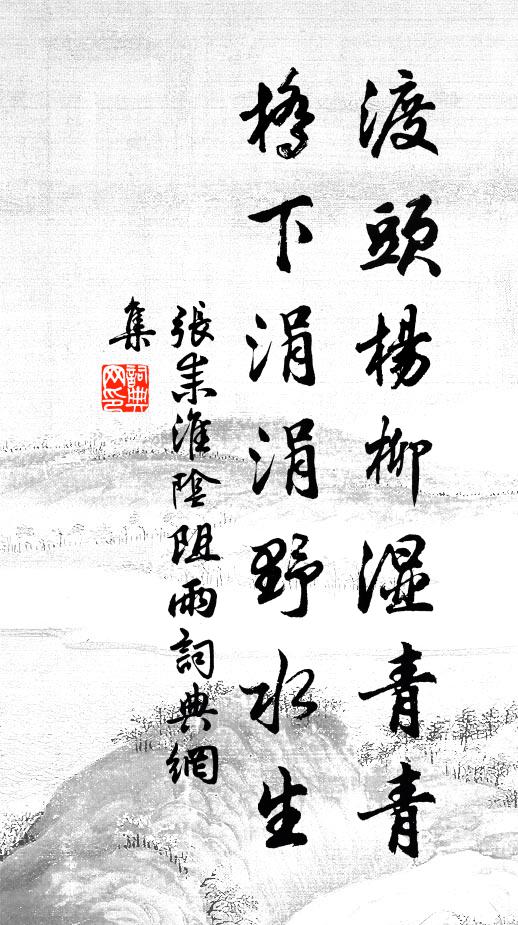 渡頭楊柳濕青青
橋下涓涓野水生
張耒淮陰阻雨詞典網
集
詞典網印